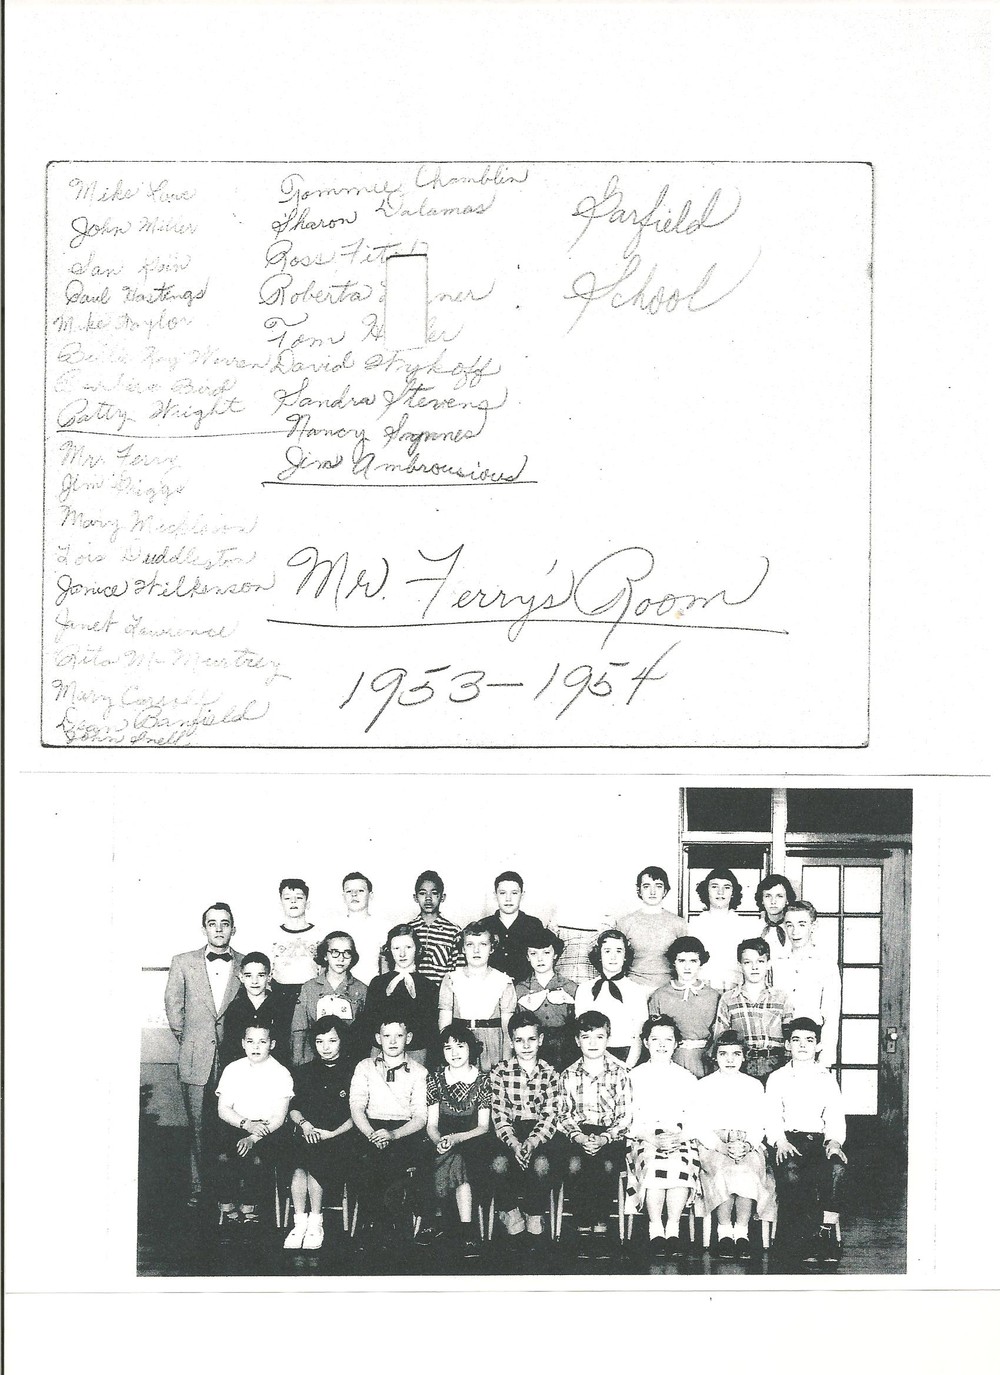 Mike
John Miller
Paul Hastings
Mike Taylor
Billie Ray Warren
Barbara Bird
Patty Wright
Mr. Ferry
Jim Griggs
Mary
Lois Huddleston
Janice Wilkenson
Janet Lawrence
Rita McMurtrey
Mary Carroll
Dean Banfield
John Snell
Tommie Chamblin
Sharon Dalamas
Ross
Roberta
Tom
David Wykoff
Sandra Stevens
Nancy
Jim Ambrousious
Garfield
School
Mr. Ferry's Room
1953-1954